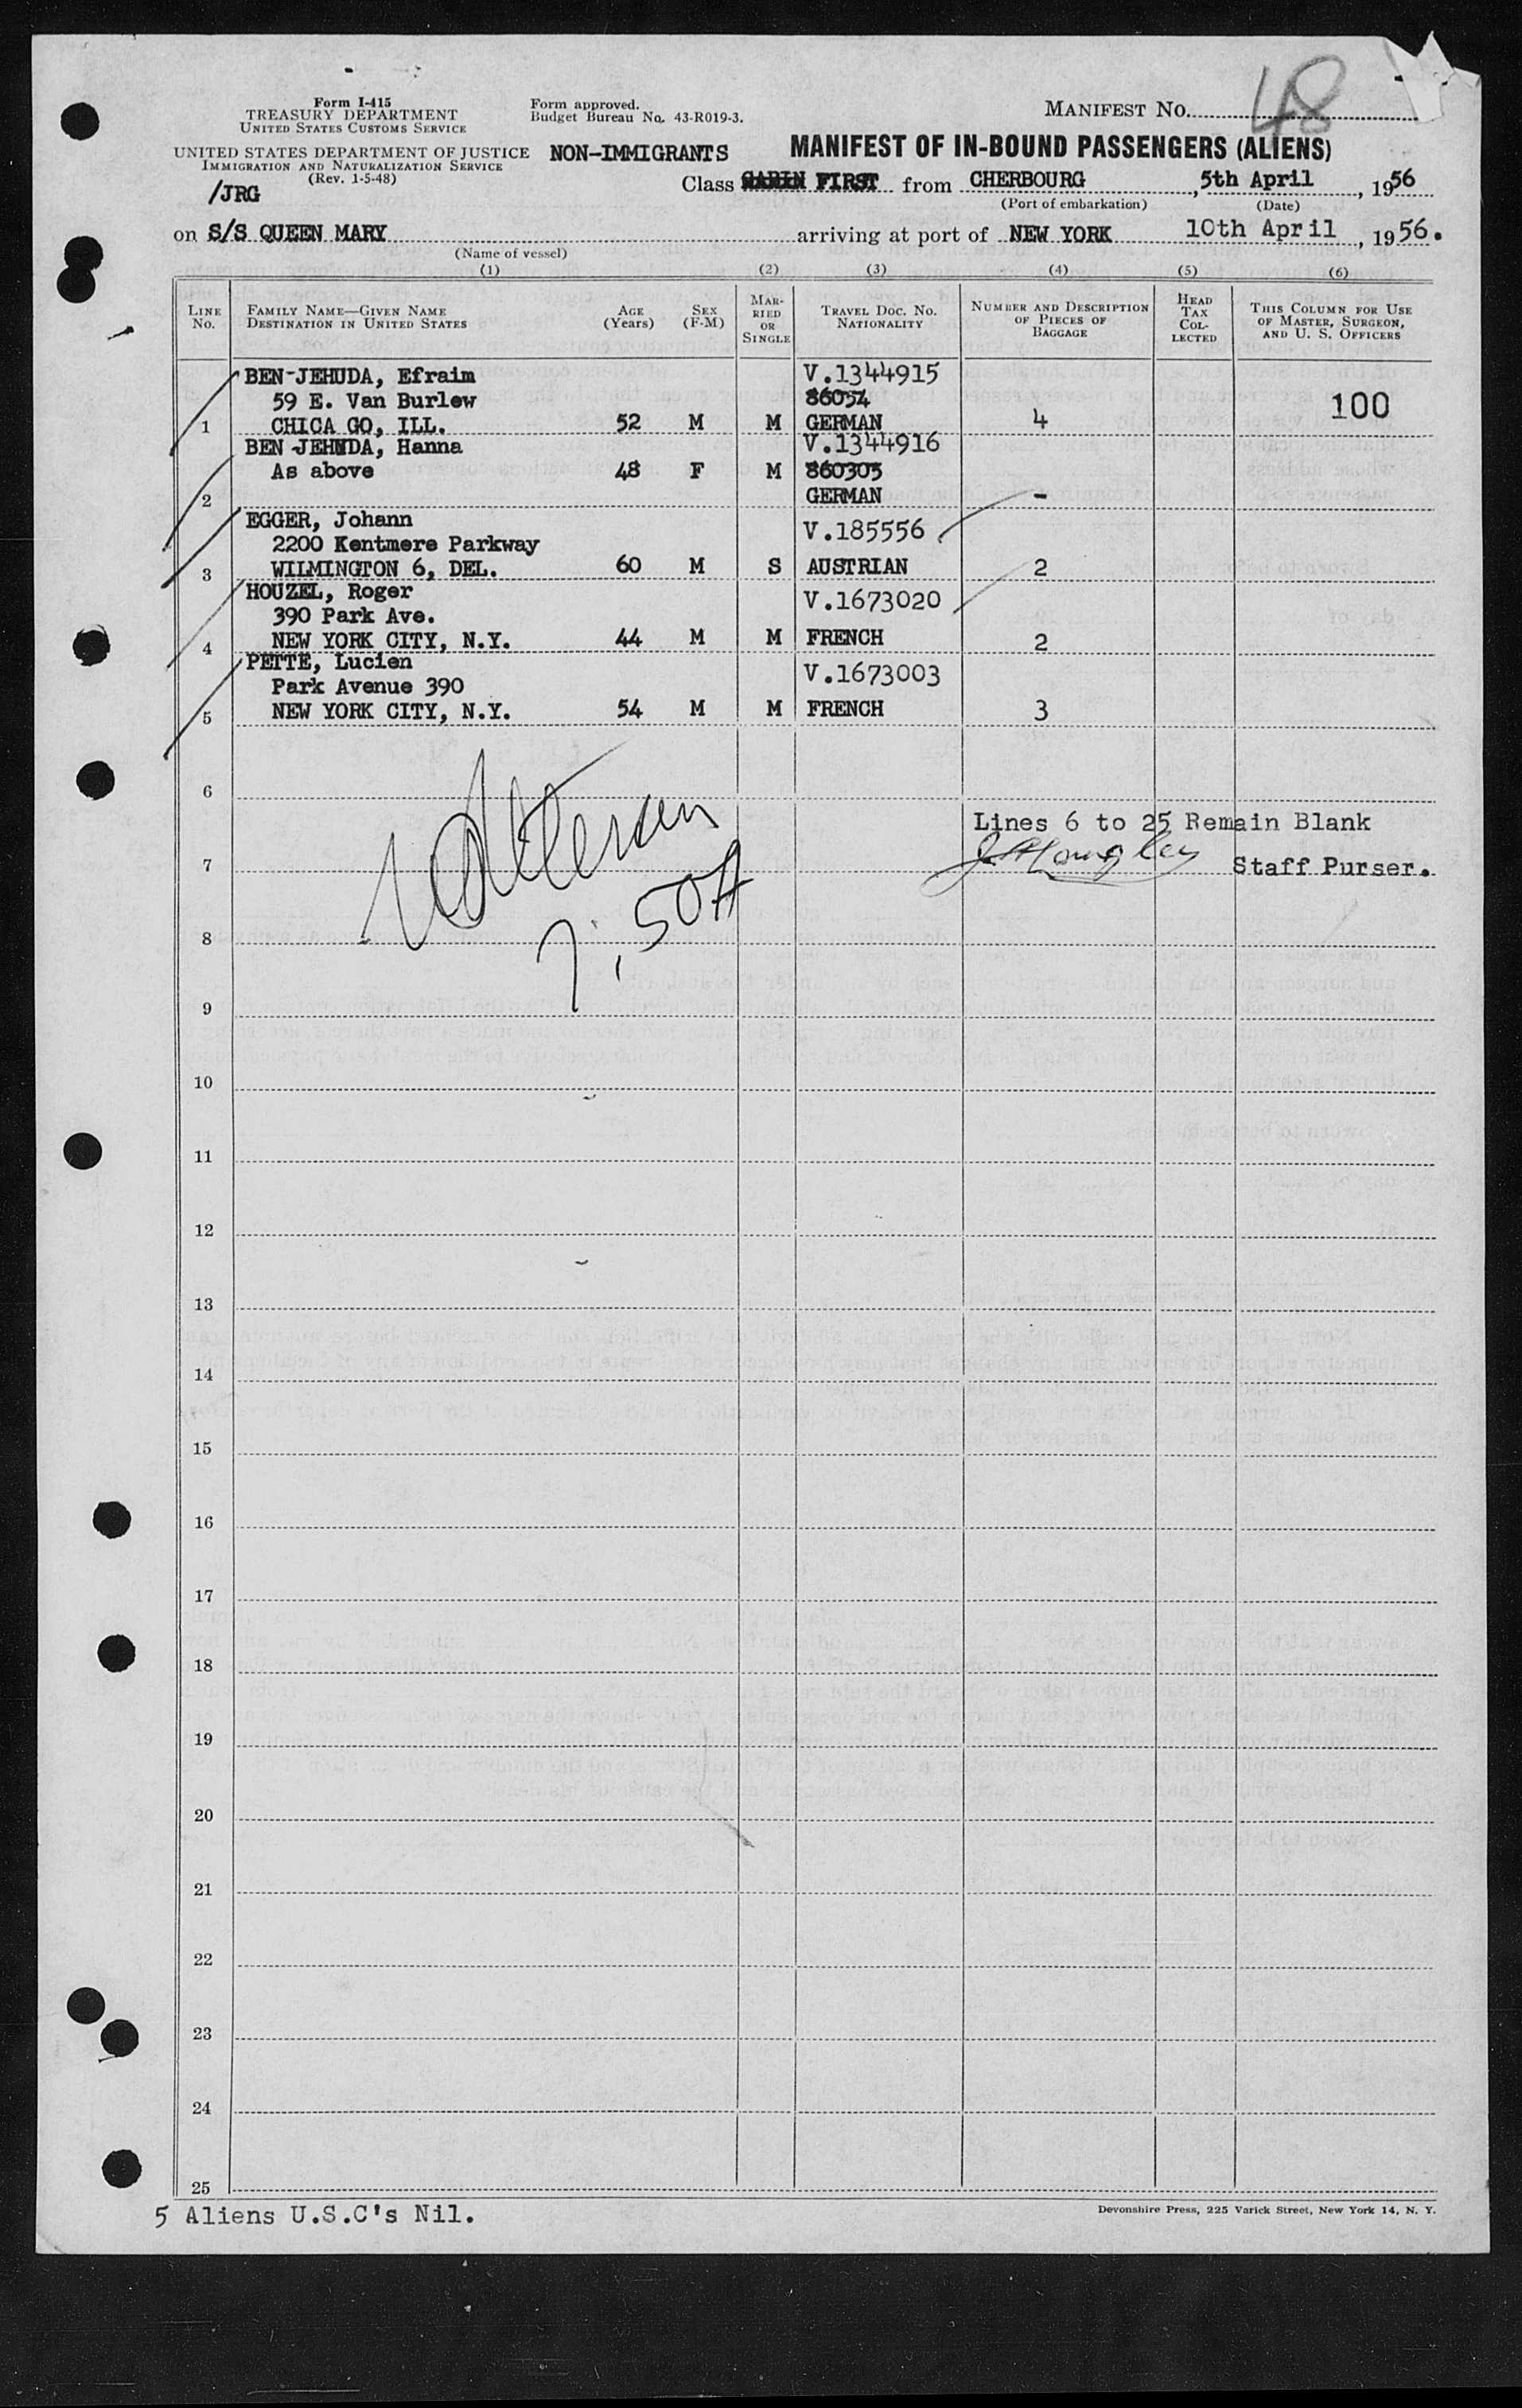 48
Form I-415
TREASURY DEPARTMENT
UNITED STATES CUSTOMS SERVICE
Form approved.
Budget Bureau No. 43-R019-3.
MANIFEST NO.
UNITED STATES DEPARTMENT OF JUSTICE
IMMIGRATION AND NATURALIZATION SERVICE
(Rev. 1-5-48)
NON-IMMIGRANTS
MANIFEST OF IN-BOUND PASSENGERS (ALIENS)
/JRG
Class CABIN FIRST from CHERBOURG, 5th April, 1956
(Port of embarkation) (Date)
on S/S QUEEN MARY arriving at port of NEW YORK 10th April, 1956.
(Name of vessel)
(1) (2) (3) (4) (5) (6)
LINE NO.
FAMILY NAME—GIVEN NAME
DESTINATION IN UNITED STATES
AGE (Years)
SEX (F-M)
MARRIED OR SINGLE
TRAVEL DOC. NO.
NATIONALITY
NUMBER AND DESCRIPTION OF PIECES OF BAGGAGE
HEAD TAX COLLECTED
THIS COLUMN FOR USE OF MASTER, SURGEON, AND U. S. OFFICERS
BEN-JEHUDA, Efraim V.1344915
59 E. Van Burlew 86054 100
1 CHICA GO, ILL. 52 M M GERMAN 4
BEN JEHUDA, Hanna V.1344916
As above 48 F M 860305
2 GERMAN -
EGGER, Johann V.185556
2200 Kentmere Parkway
3 WILMINGTON 6, DEL. 60 M S AUSTRIAN 2
HOUZEL, Roger V.1673020
390 Park Ave.
4 NEW YORK CITY, N.Y. 44 M M FRENCH 2
PETTE, Lucien V.1673003
Park Avenue 390
5 NEW YORK CITY, N.Y. 54 M M FRENCH 3
6
Lines 6 to 25 Remain Blank
7 Staff Purser.
8
9
10
11
12
13
14
15
16
17
18
19
20
21
22
23
24
25
5 Aliens U.S.C's Nil.
Devonshire Press, 225 Varick Street, New York 14, N. Y.